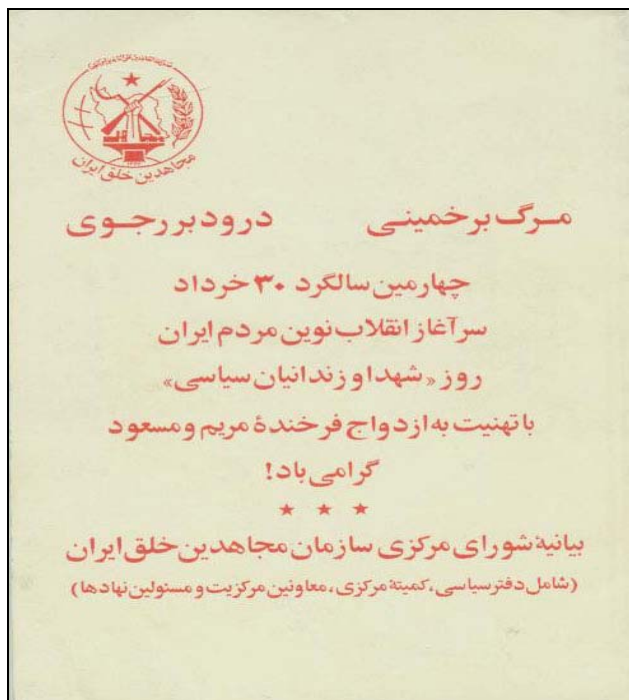 مجاهدین خلق ایران
مرگ بر خمینی درود بر رجوی
چهارمین سالگرد ۳۰ خرداد
سرآغاز انقلاب نوین مردم ایران
روز «شهدا و زندانیان سیاسی»
با تهنیت به ازدواج فرخندهٔ مریم و مسعود
گرامی باد!
★ ★ ★
بیانیهٔ شورای مرکزی سازمان مجاهدین خلق ایران
(شامل دفتر سیاسی، کمیتهٔ مرکزی، معاونین مرکزیت و مسئولین نهادها)